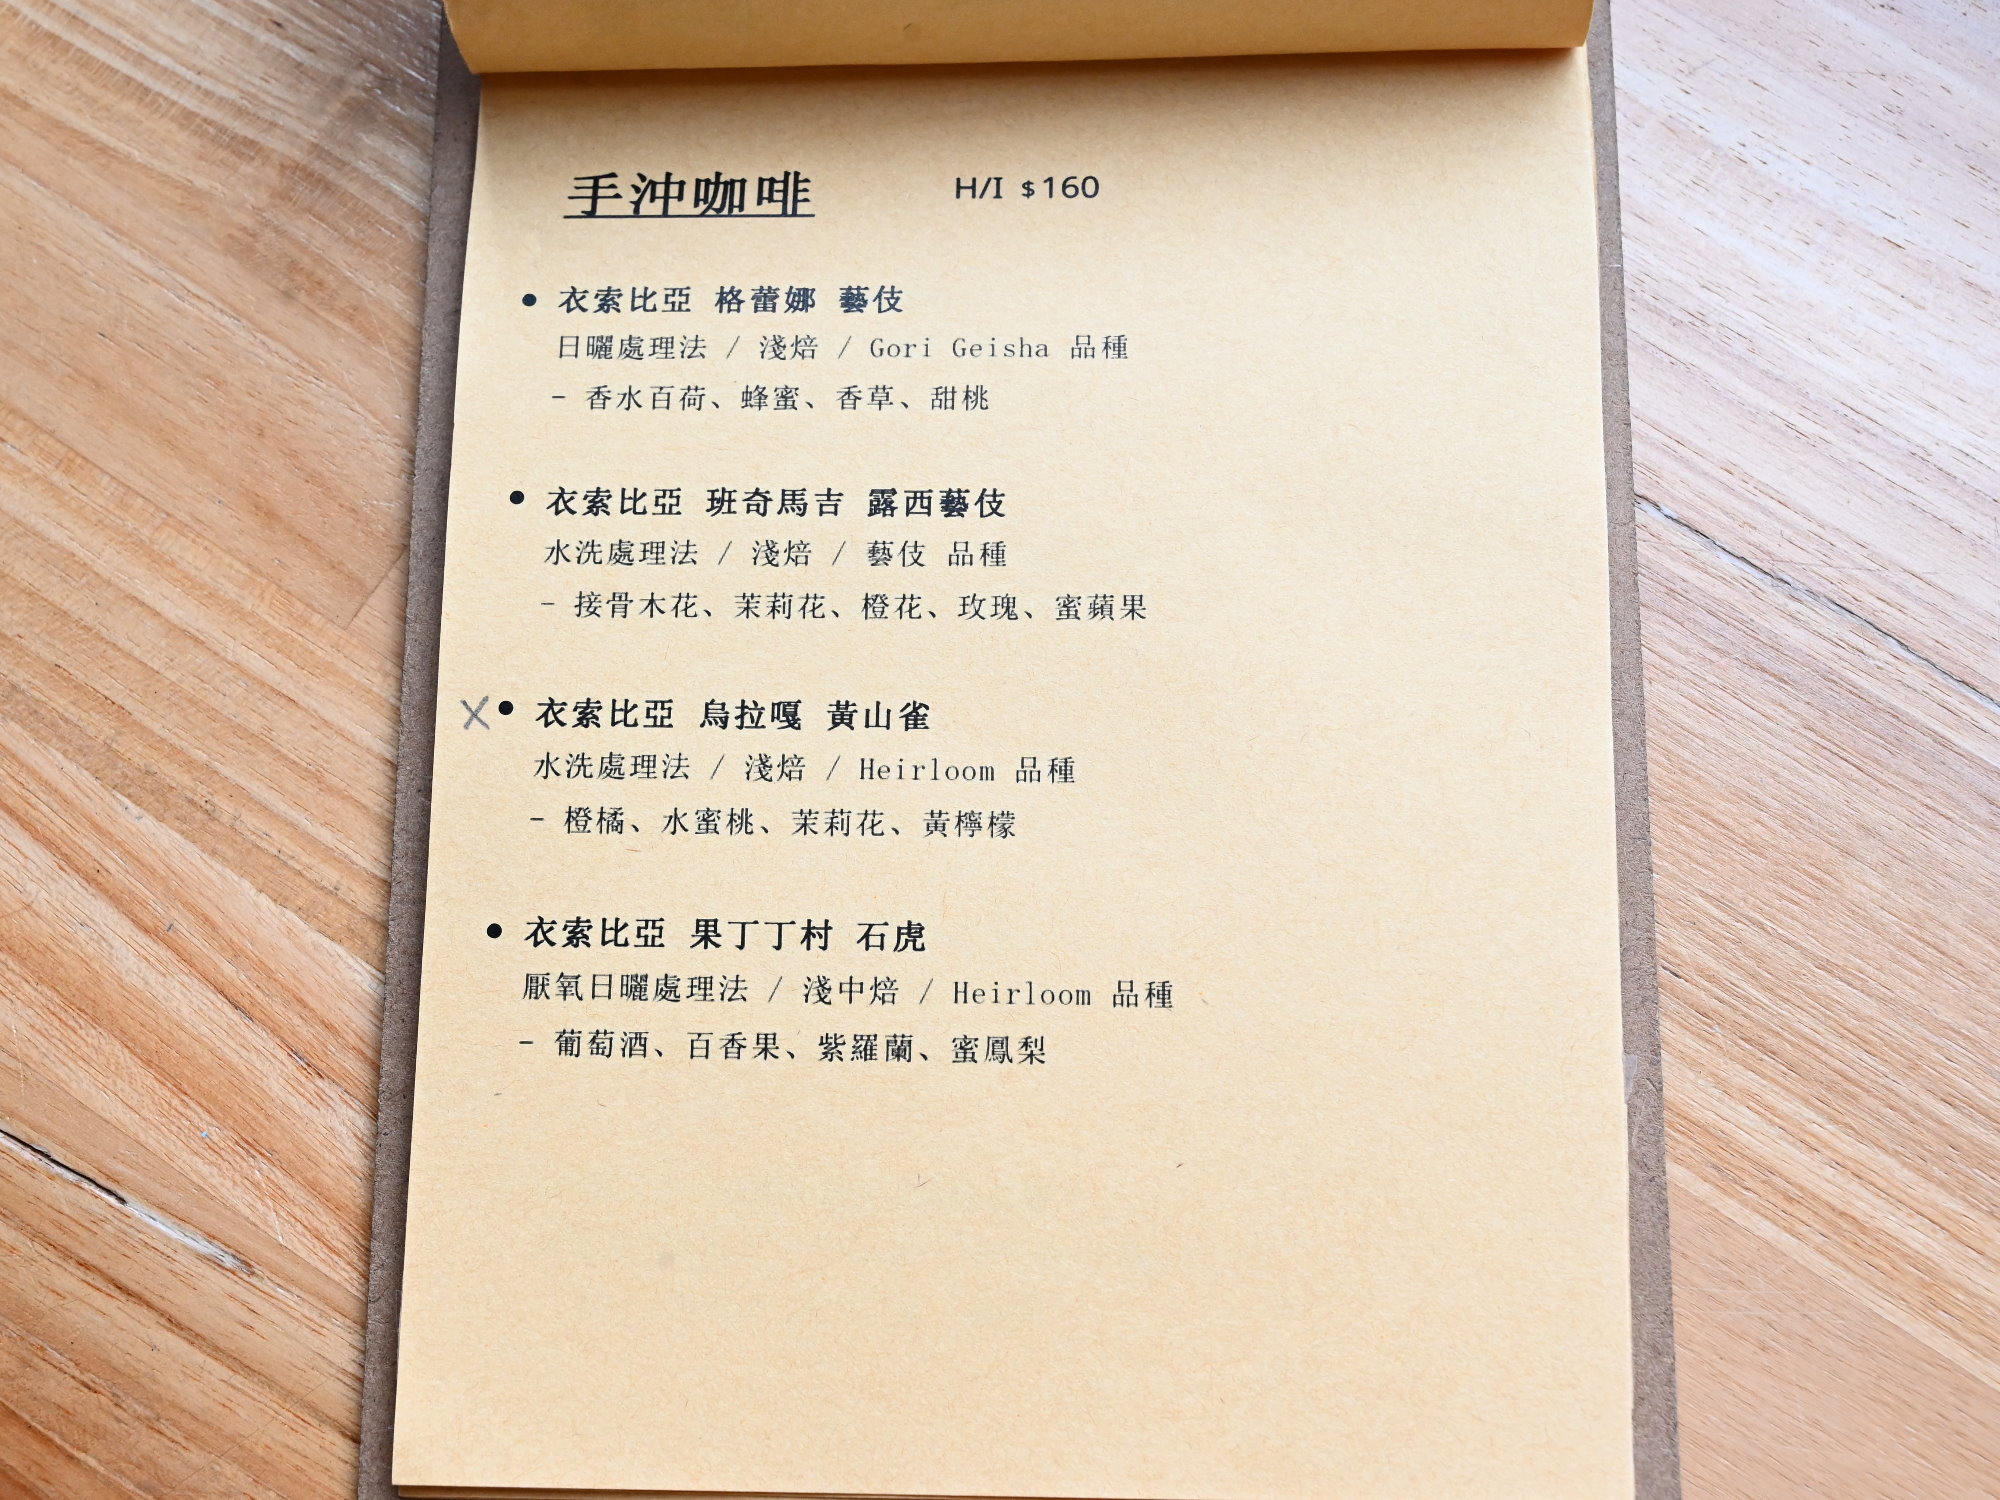 手沖咖啡 H/I $160
● 衣索比亞 格蕾娜 藝伎
日曬處理法 / 淺焙 / Gori Geisha 品種
- 香水百荷、蜂蜜、香草、甜桃
● 衣索比亞 班奇馬吉 露西藝伎
水洗處理法 / 淺焙 / 藝伎 品種
- 接骨木花、茉莉花、橙花、玫瑰、蜜蘋果
X ● 衣索比亞 烏拉嘎 黃山雀
水洗處理法 / 淺焙 / Heirloom 品種
- 橙橘、水蜜桃、茉莉花、黃檸檬
● 衣索比亞 果丁丁村 石虎
厭氧日曬處理法 / 淺中焙 / Heirloom 品種
- 葡萄酒、百香果、紫羅蘭、蜜鳳梨